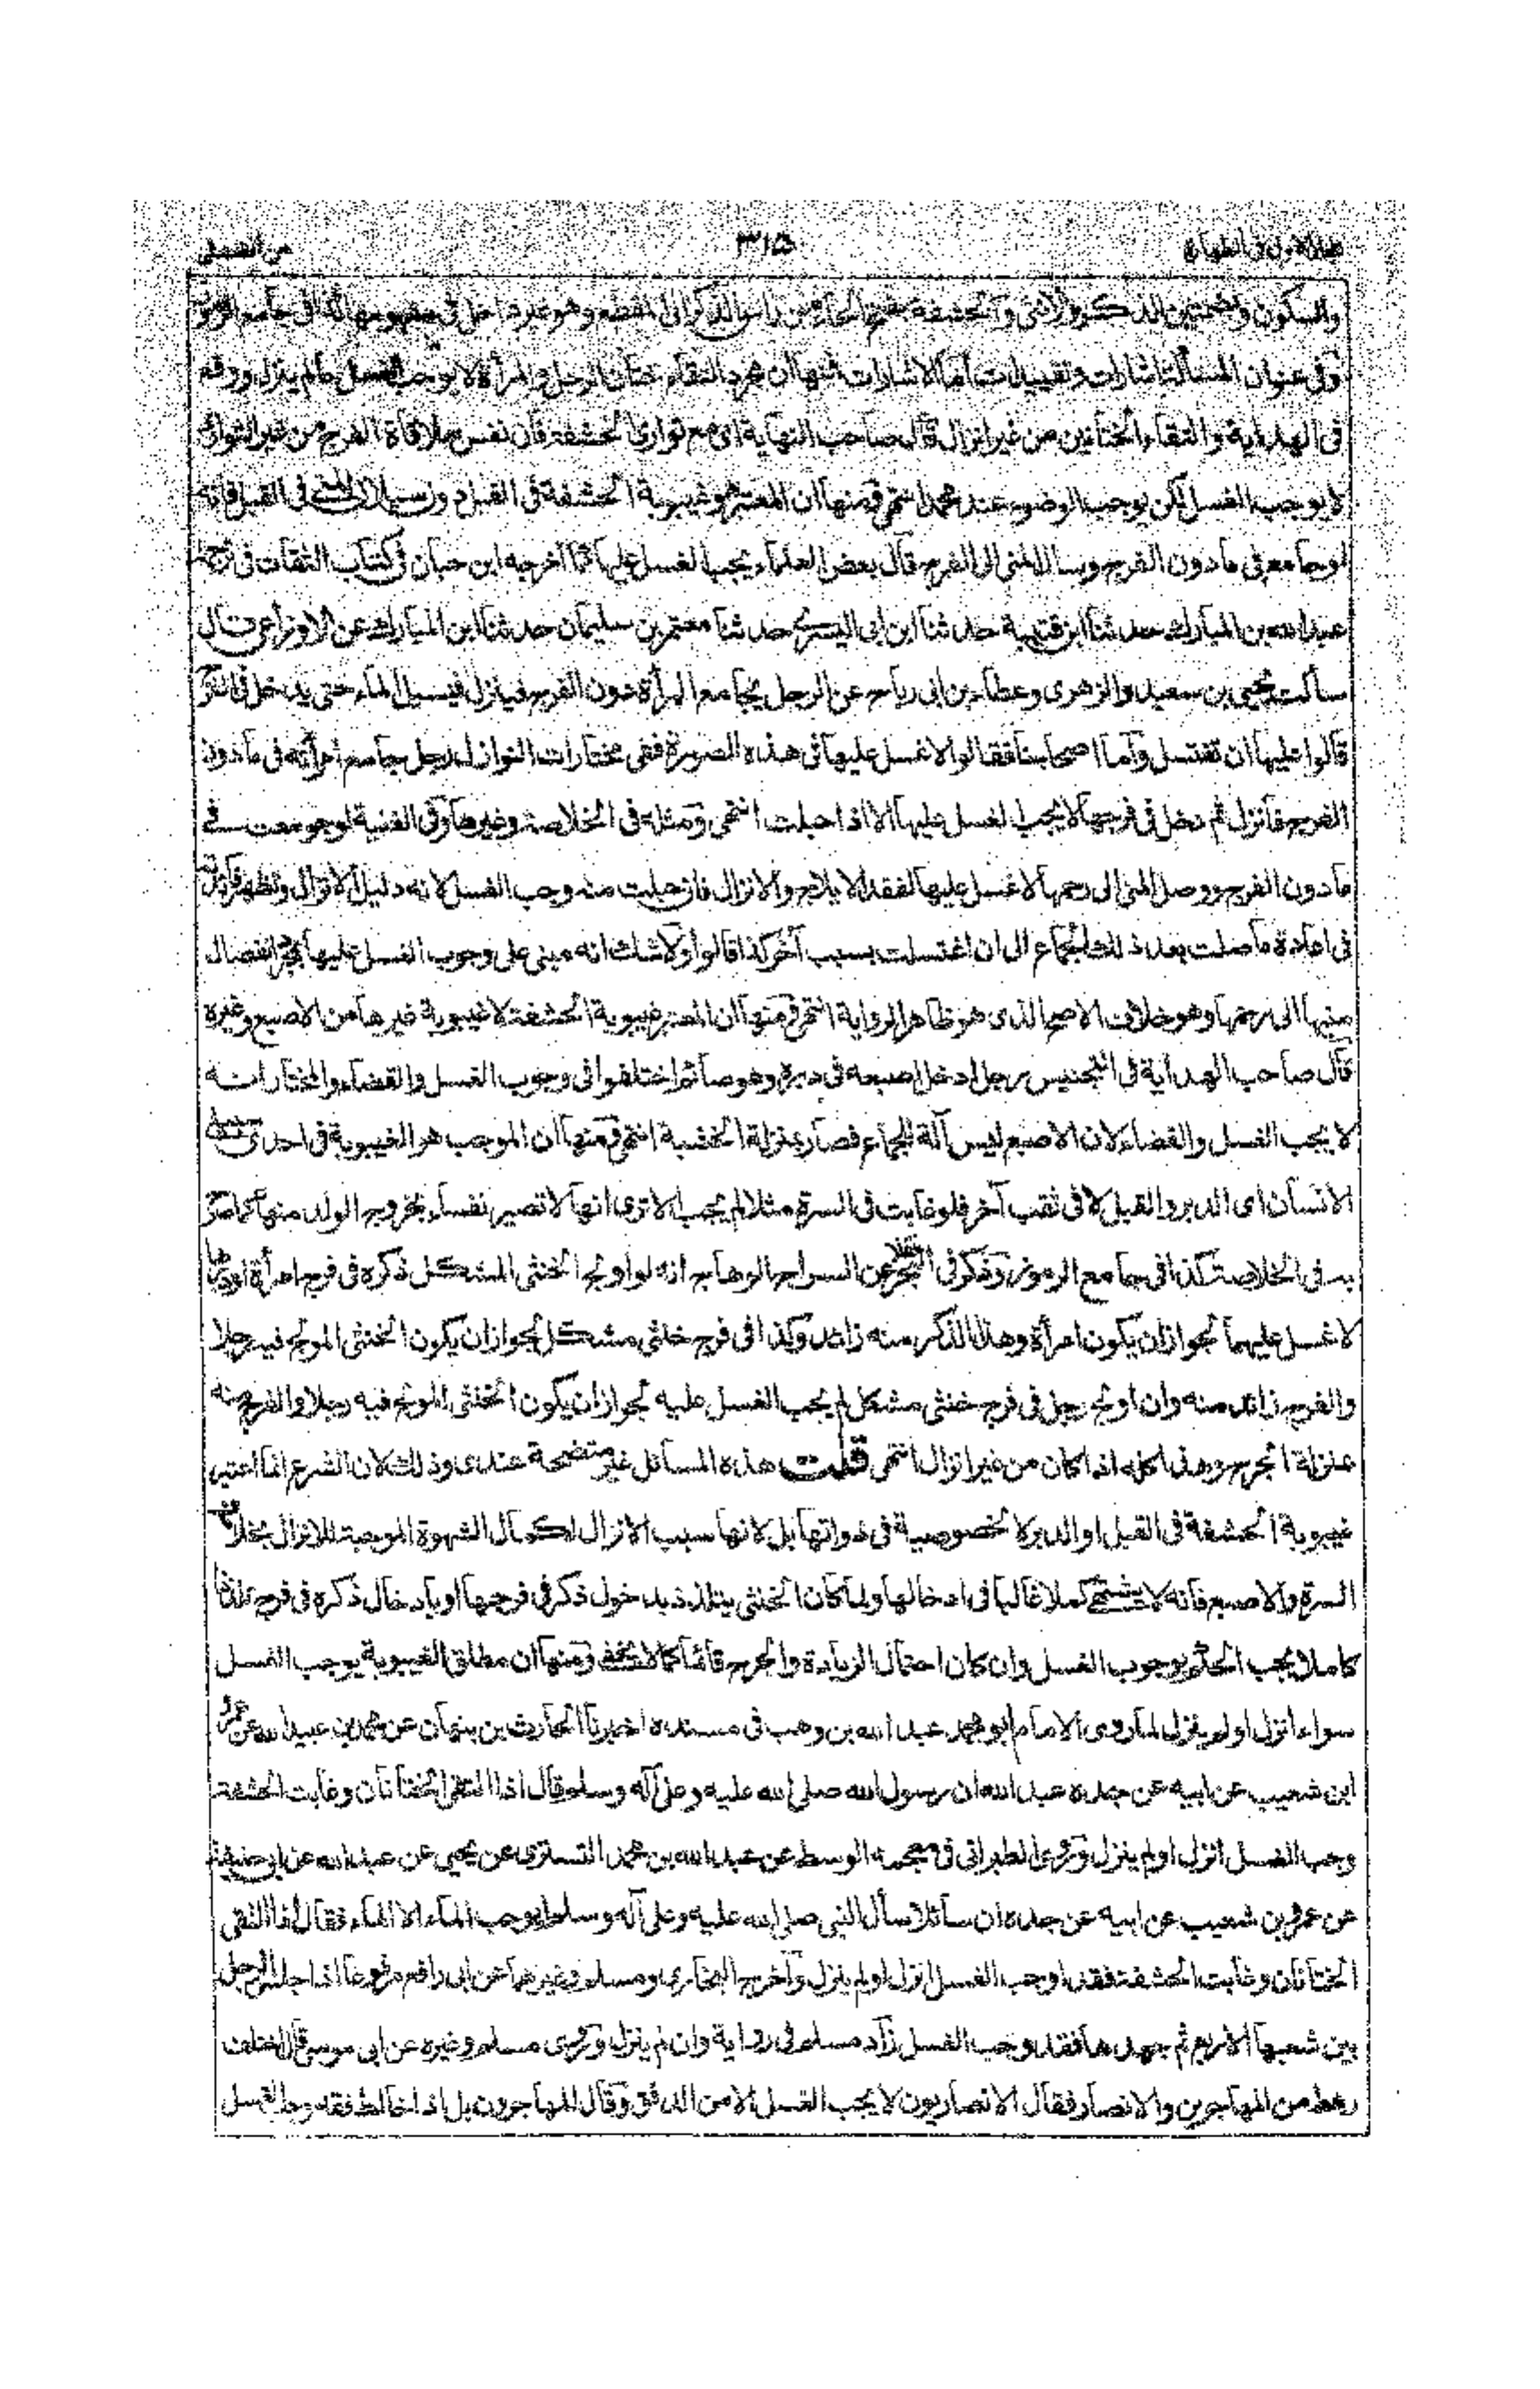 ٣١٥
والسكون وبضمتين الذكر والانثى والحشفة من راس الذكر الى المقطع وهو غير داخل فى مفهومها كذا فى جامع الرموز
وفى عنوان المسألة اشارات وتقييدات اما الاشارات فمنها ان مجرد التقاء ختان الرجل والمرأة لا يوجب الغسل مالم ينزل ووقع
فى الهداية والتقاء الختانين من غير انزال قال صاحب النهاية اى مع توارى الحشفة فان نفس ملاقاة الفرج من غير التوارى
لا يوجب الغسل لكن يوجب الوضوء عند محمد انتهى ومنها ان المعتبر هو غيبوبة الحشفة فى القبل دون سيلان المنى فى القبل فانه
لو جامع فى مادون الفرج وسال المنى الى الفرج قال بعض العلماء يجب الغسل عليها كما اخرجه ابن حبان فى كتاب الثقات فى ترجمة
عبد الله بن المبارك حدثنا ابن قتيبة حدثنا ابن ابى السرى حدثنا معتمر بن سليمان حدثنا ابن المبارك عن الاوزاعى قال
سألت يحيى بن سعيد والزهرى وعطاء بن ابى رباح عن الرجل يجامع المرأة دون الفرج فينزل فيسيل الماء حتى يدخل فى الفرج
قالوا عليها ان تغتسل واما اصحابنا فقالوا لا غسل عليها فى هذه الصورة ففى مختارات النوازل رجل جامع امرأته فى مادون
الفرج فانزل ثم دخل فى فرجها لا يجب الغسل عليها الا اذا حبلت انتهى ومثله فى الخلاصة وغيرها وفى الغنية لو جومعت فى
مادون الفرج ووصل المنى الى رحمها لا غسل عليها لفقد الايلاج والانزال فان حبلت منه وجب الغسل لانه دليل الانزال وتظهر فائدته
فى اعادة ما صلت بعد ذلك الجماع الى ان اغتسلت بسبب آخر كذا قالوا ولا شك انه مبنى على وجوب الغسل عليها بمجرد انفصال
منيها الى رحمها وهو خلاف الاصح الذى هو ظاهر الرواية انتهى ومنها ان المعتبر غيبوبة الحشفة لا غيبوبة غيرها من الاصبع وغيره
قال صاحب الهداية فى التجنيس رجل ادخل اصبعه فى دبره وهو صائم اختلفوا فى وجوب الغسل والقضاء والمختار انه
لا يجب الغسل والقضاء لان الاصبع ليس آلة للجماع فصار بمنزلة الخشبة انتهى ومنها ان الموجب هو الغيبوبة فى احدى سبيلى
الانسان اى الدبر والقبل لا فى ثقب آخر فلو غابت فى السرة مثلا لم يجب الا ترى انها لا تصير نفساء بخروج الولد منها كما صرح
به فى الخلاصة كذا فى جامع الرموز وذكر فى البحر نقلا عن السراج الوهاج انه لو اولج الخنثى المشكل ذكره فى فرج امرأة او دبرها
لا غسل عليهما لجواز ان يكون امرأة وهذا الذكر منه زائد وكذا فى فرج خنثى مشكل لجواز ان يكون الخنثى المولج فيه رجلا
والفرج زائد منه وان اولج رجل فى فرج خنثى مشكل لم يجب الغسل عليه لجواز ان يكون الخنثى المولج فيه رجلا والفرج منه
بمنزلة الجرح وهذا كله اذا كان من غير انزال انتهى قلت هذه المسائل غير متضحة عندى وذلك لان الشرع انما اعتبر
غيبوبة الحشفة فى القبل او الدبر لا لخصوصية فى ذواتها بل لانها سبب الانزال لكمال الشهوة الموجبة للانزال بخلاف
السرة والاصبع فانه لا يشتهى كملا غالبا فى ادخالها ولما كان الخنثى يتلذذ بدخول ذكر فى فرجها او بادخال ذكره فى فرج تلذذا
كاملا يجب الحكم بوجوب الغسل وان كان احتمال الزيادة والجرح قائما كما لا يخفى ومنها ان مطلق الغيبوبة يوجب الغسل
سواء انزل او لم ينزل لما روى الامام ابو محمد عبد الله بن وهب فى مسنده اخبرنا الحارث بن نبهان عن محمد بن عبيد الله عن عمرو
ابن شعيب عن ابيه عن جده عبد الله ان رسول الله صلى الله عليه وعلى آله وسلم قال اذا التقى الختانان وغابت الحشفة
وجب الغسل انزل او لم ينزل وروى الطبرانى فى معجمه الوسط عن عبد الله بن محمد التسترى عن يحيى عن عبد الله عن ابى حنيفة
عن عمرو بن شعيب عن ابيه عن جده ان سائلا سأل النبى صلى الله عليه وعلى آله وسلم ايوجب الماء الا الماء فقال اذا التقى
الختانان وغابت الحشفة فقد اوجب الغسل انزل او لم ينزل واخرج البخارى ومسلم وغيرهما عن ابى رافع مرفوعا اذا جلس الرجل
بين شعبها الاربع ثم جهدها فقد وجب الغسل زاد مسلم فى رواية وان لم ينزل وروى مسلم وغيره عن ابى موسى قال اختلف
رهط من المهاجرين والانصار فقال الانصاريون لا يجب الغسل الا من الدفق وقال المهاجرون بل اذا خالط فقد وجب الغسل